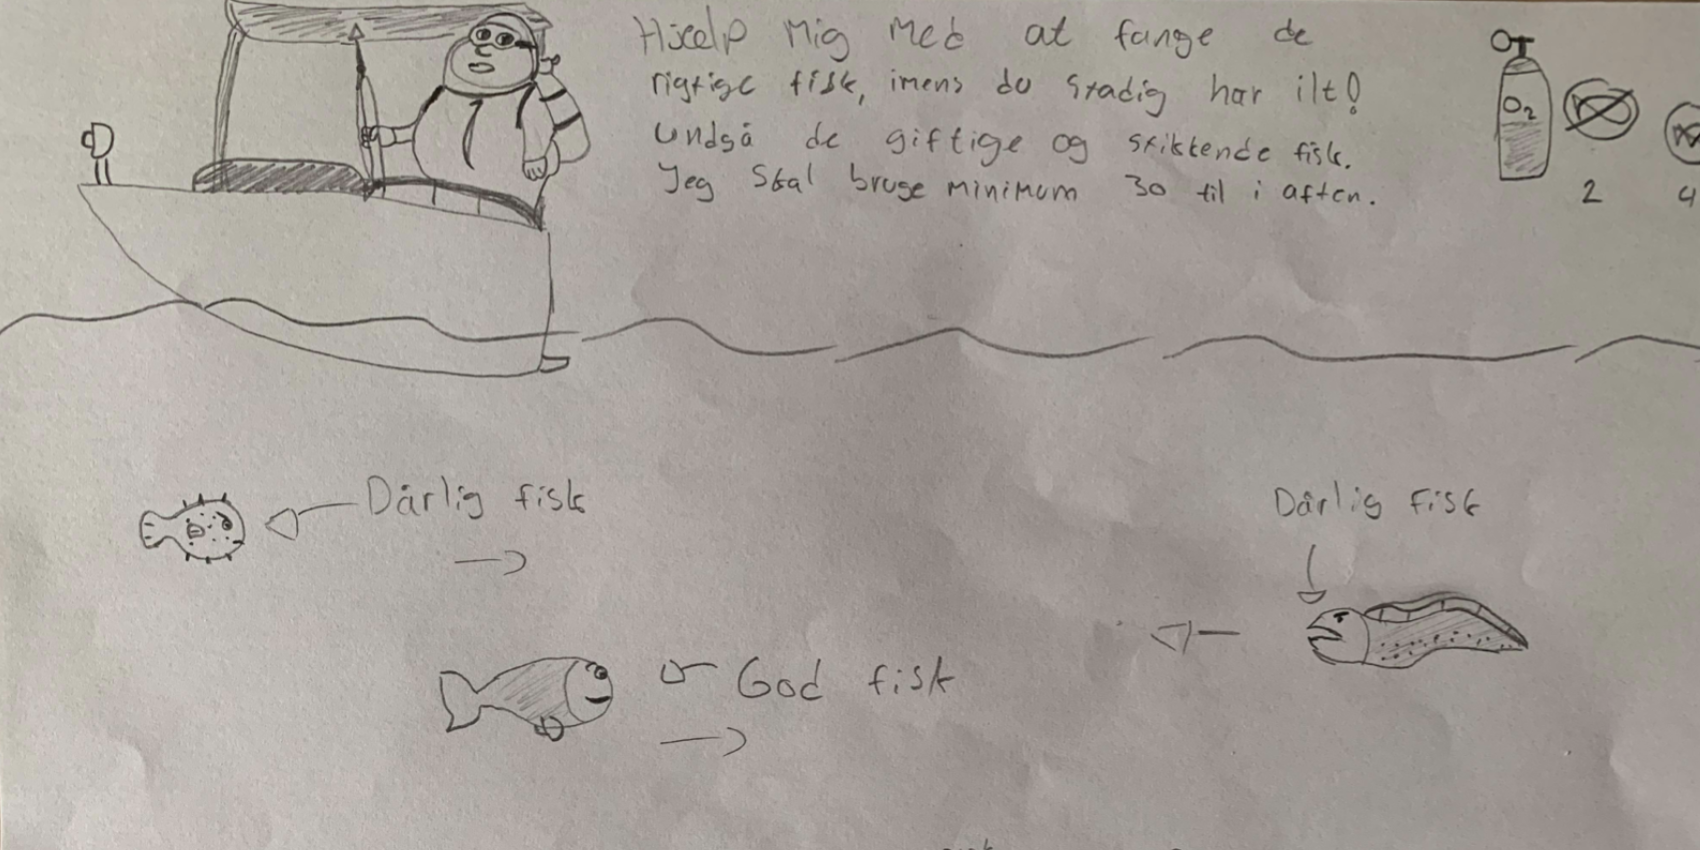 Hjælp mig med at fange de
rigtige fisk, imens du stadig har ilt!
undgå de giftige og stikkende fisk.
Jeg skal bruge minimum 30 til i aften.
O2
2
4
Dårlig fisk
Dårlig fisk
God fisk